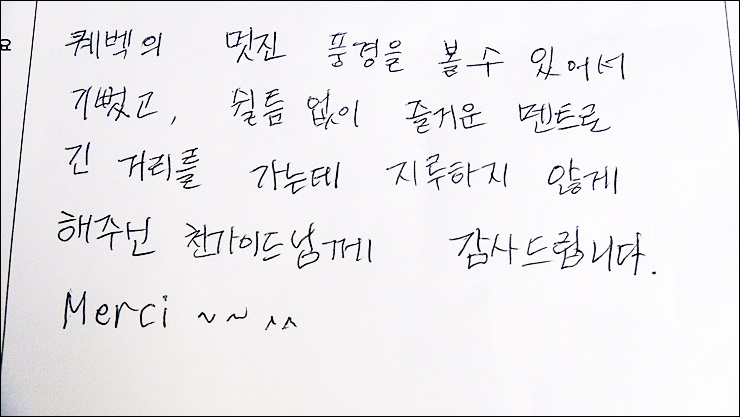 요
퀘벡의 멋진 풍경을 볼 수 있어서
기뻤고, 쉴틈 없이 즐거운 멘트로
긴 거리를 가는데 지루하지 않게
해주신 천가이드님께 감사드립니다.
Merci ~~ ^^